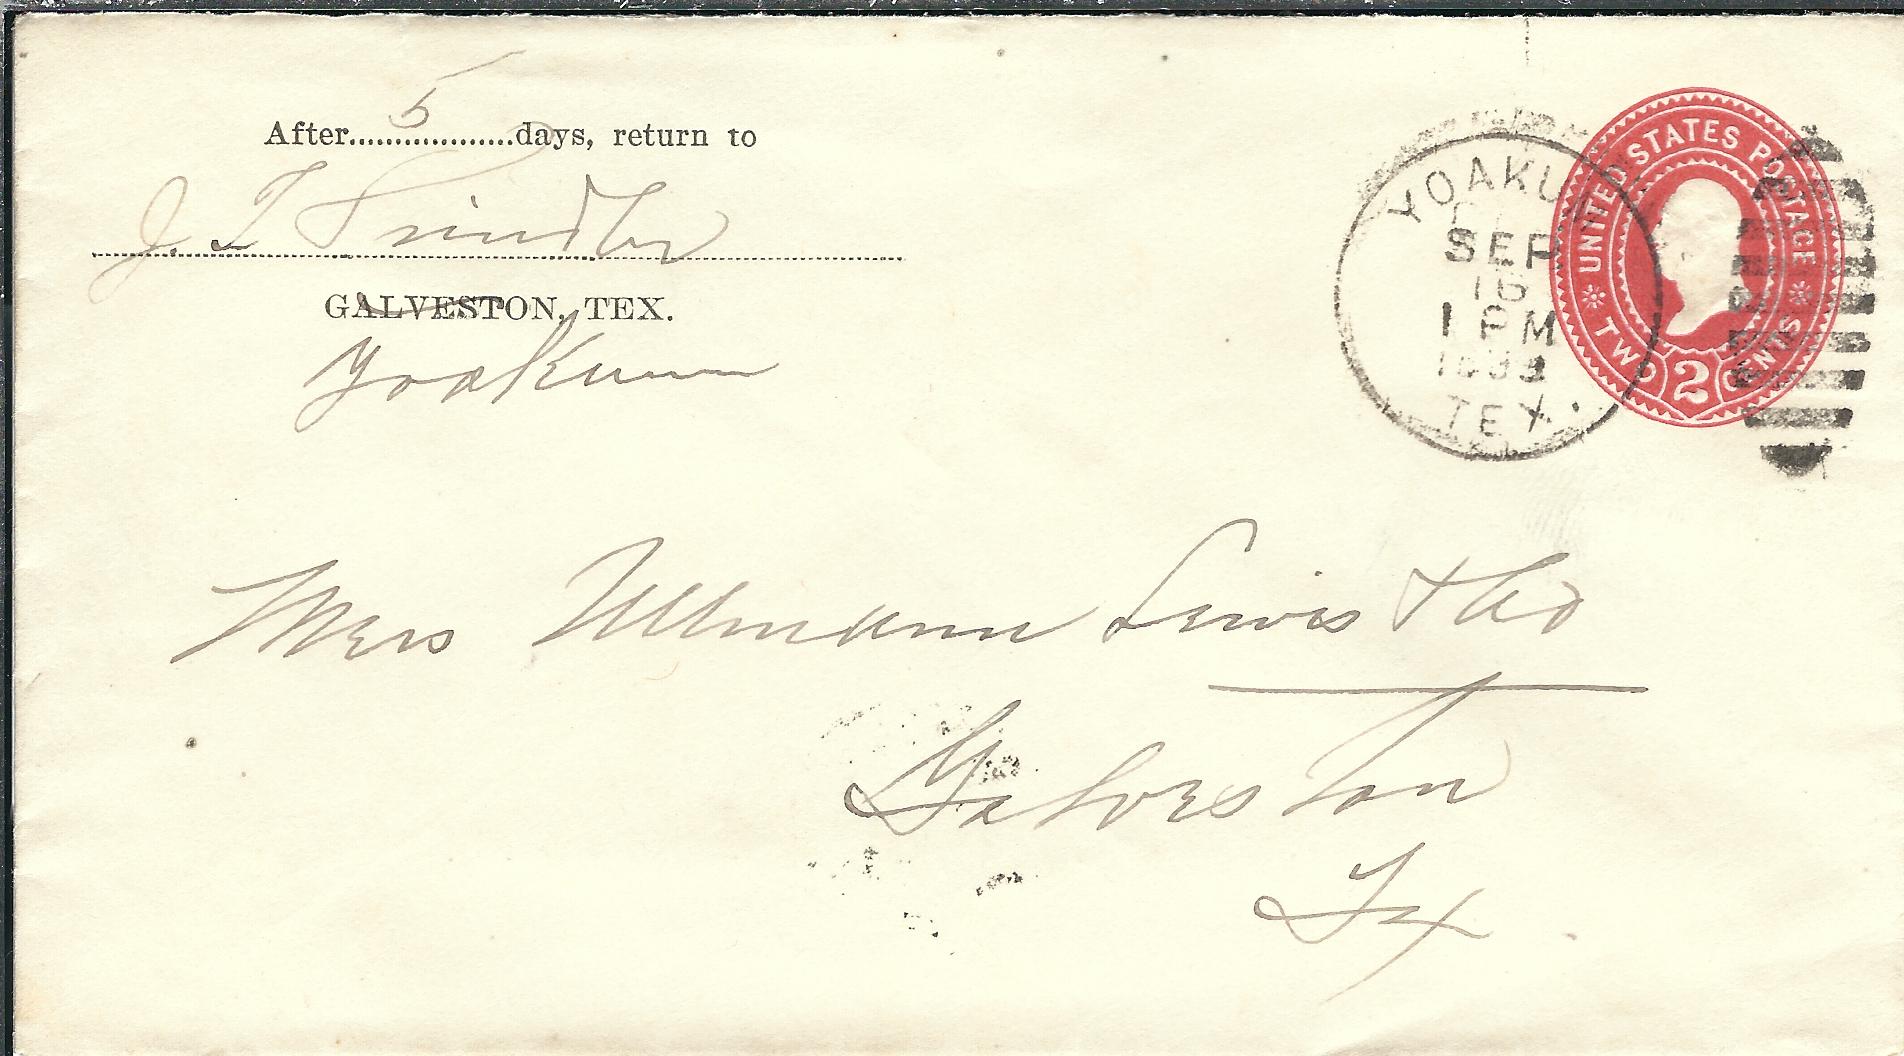 After 5 days, return to
J. T.
GALVESTON, TEX.
Yoakum
YOAKU
SEP
16
1 PM
TEX.
UNITED STATES POSTAGE
TWO 2 CENTS
Mers Ullmann Lewis & Co
Galveston
Tx